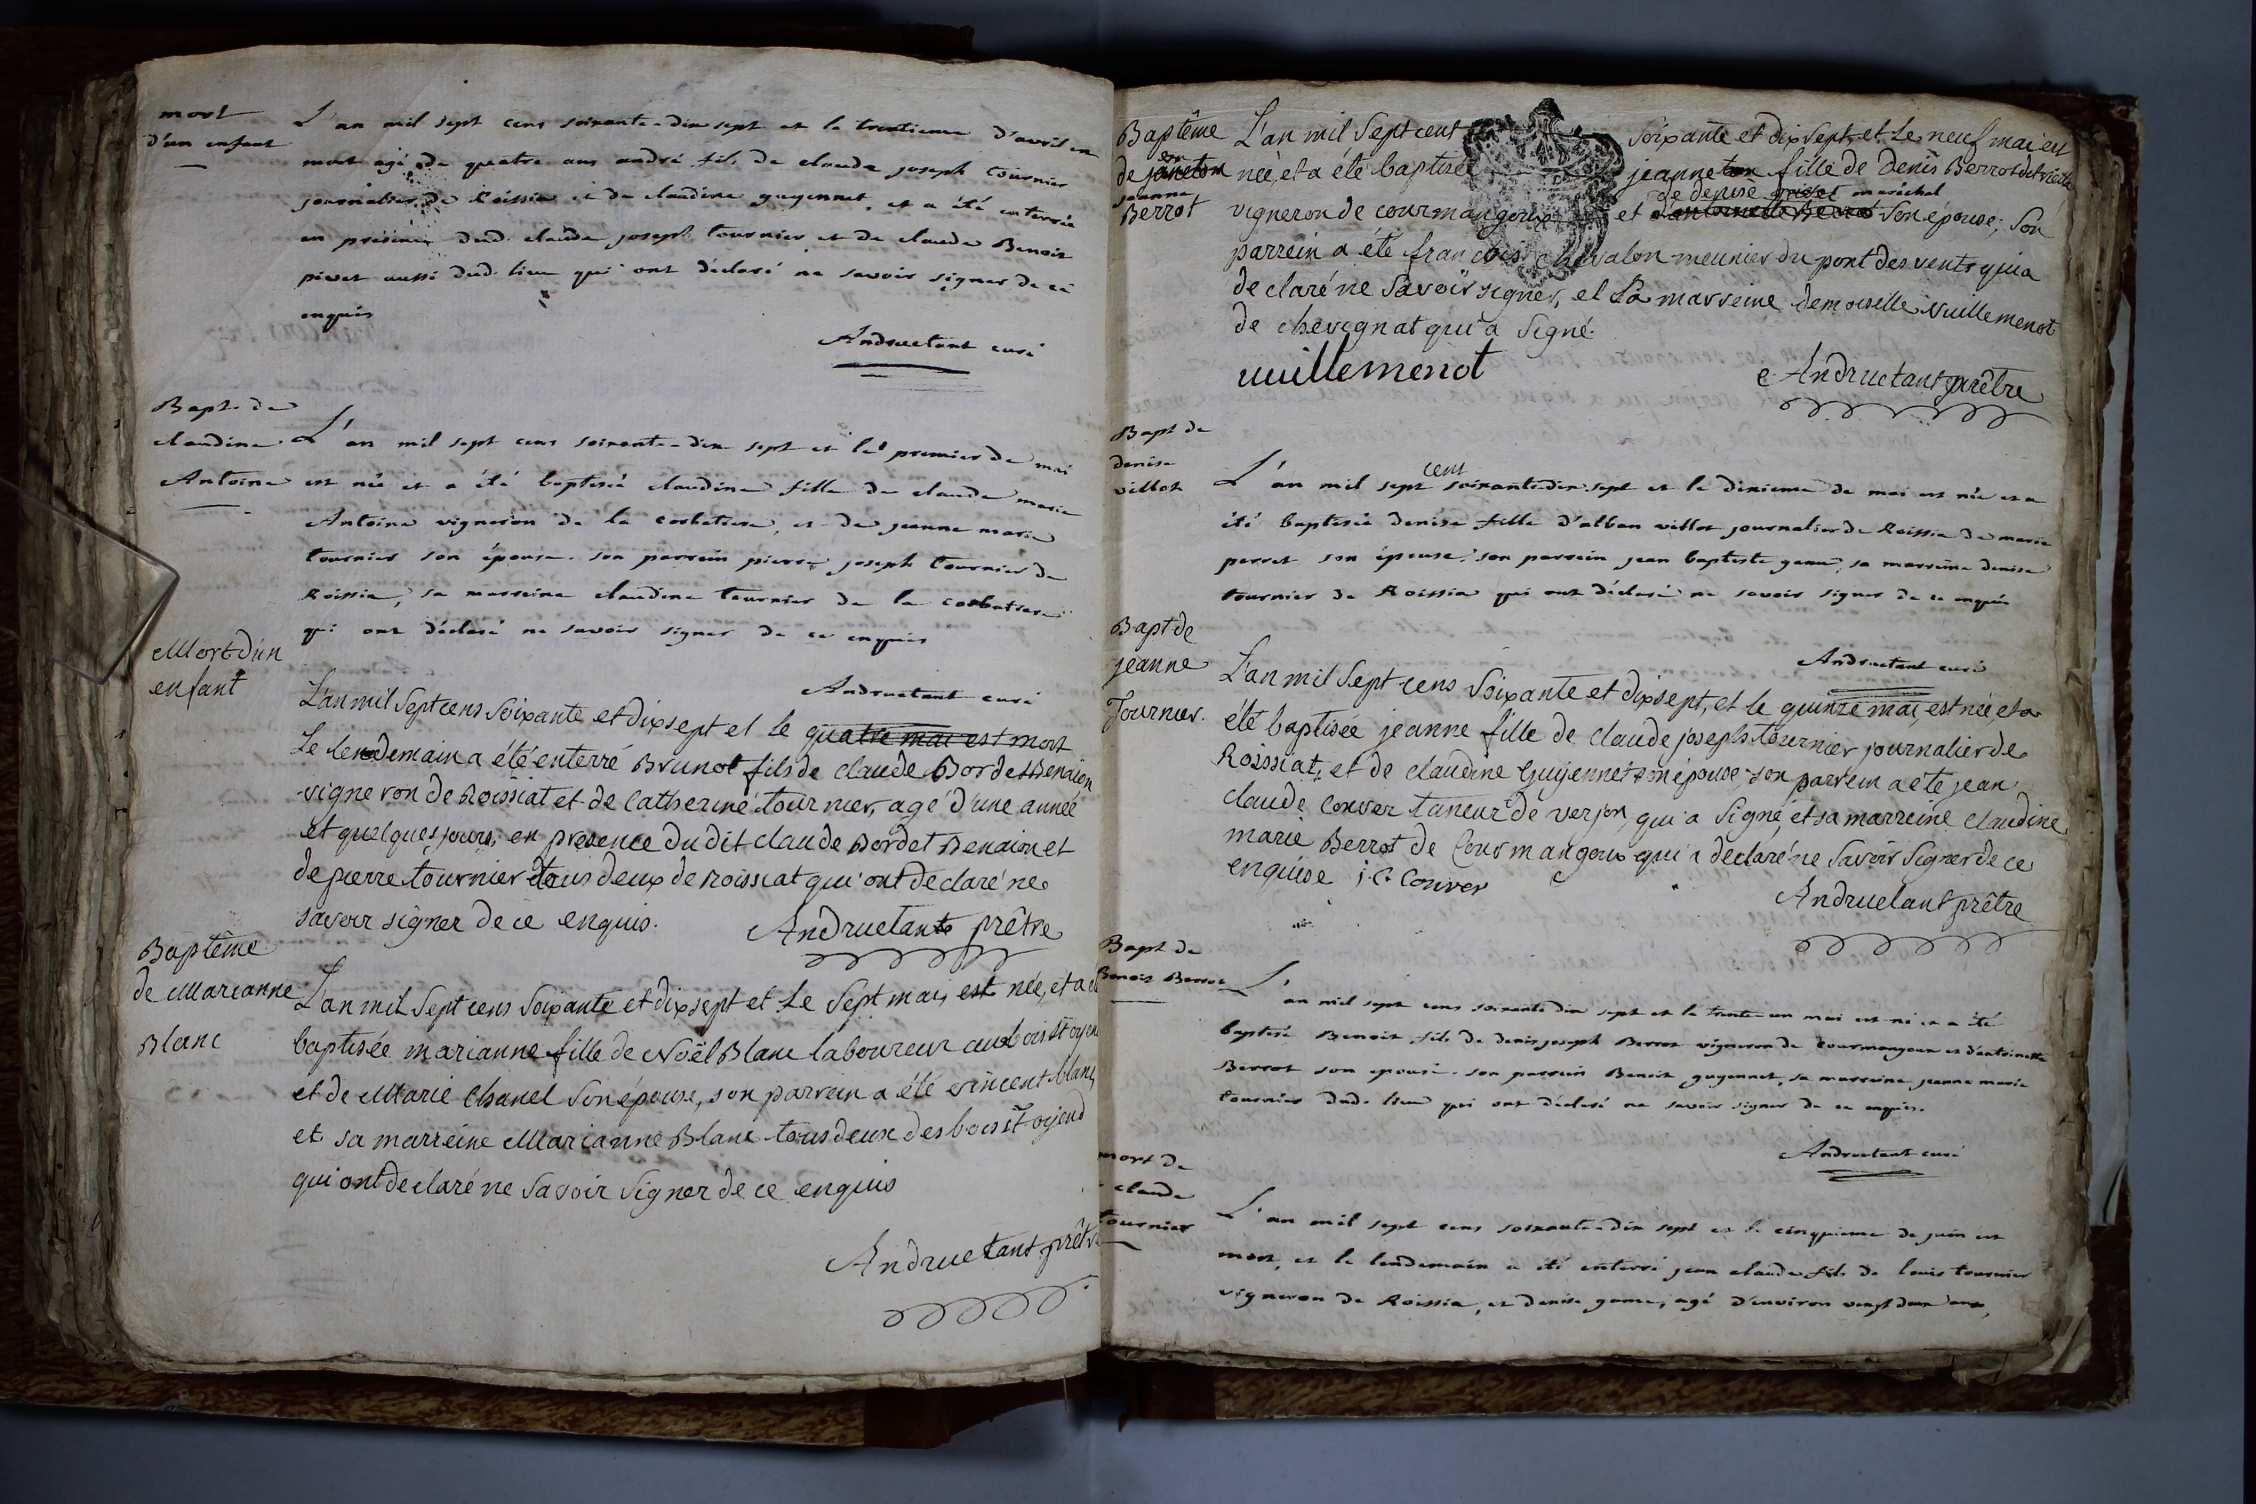 mort
d'un enfant
L'an mil sept cens soixante-dix sept et le trentieme d'avril est
mort agé de quatre ans andré fils de claude joseph tournier
journalier de Roissia et de claudine guyennet, et a été enterrée
en présence dud. claude joseph tournier et de claude Benoit
pivet aussi dud. lieu qui ont déclaré ne savoir signer de ce
enquis
Andruetant curé
Bapt. de
claudine
Antoine
L'an mil sept cens soixante-dix sept et le premier de mai
est née et a été baptisée claudine fille de claude marie
Antoine vigneron de la corbatiere, et de jeanne marie
tournier son épouse. son parrein pierre joseph tournier de
Roissia, sa marreine claudine tournier de la corbatiere
qui ont déclaré ne savoir signer de ce enquis
Andruetant curé
Mort d'un
enfant
L'an mil Sept cens Soixante et dix sept et le quatre mai est mort
Le lendemain a été enterré Brunot fils de claude Bordet Benaion
vigneron de Roissiat et de Catherine tournier, agé d'une année
et quelques jours, en presence du dit claude Bordet Benaion et
de pierre tournier tous deux de Roissiat qui ont declaré ne
savoir signer de ce enquis.
Andruetant prêtre
Baptême
de Marianne
Blanc
L'an mil Sept cens Soixante et dix sept et Le Sept mai, est née, et a été
baptisée marianne fille de Noël Blanc laboureur aux bois St oyen
et de Marie Chanel Son épouse, son parrein a été vincent blanc
et sa marreine Marianne Blanc tous deux des bois St oyend
qui ont declaré ne Savoir Signer de ce enquis
Andruetant prêtre
Baptême
de janeton
jeanne
Berrot
L'an mil Sept cent Soixante et dix Sept, et Le neuf mai est
née, et a été baptisée jeanneton fille de Denis Berrot
de denise maréchal
vigneron de courmangoux et Son épouse; Son
parrein a été francois chevalon meunier du pont des vents qui a
declaré ne Savoir signer, et Sa marreine demoiselle vuillemenot
de chevignat qui a Signé.
vuillemenot
Andruetant prêtre
Bapt de
denise
villot
cent
L'an mil sept soixante-dix-sept et le dixieme de mai est née et a
été baptisée denise fille d'alban villot journalier de Roissia de marie
perret son épouse; son parrein jean baptiste game, sa marreine denise
tournier de Roissia qui ont déclaré ne savoir signer de ce enquis
Andruetant curé
Bapt de
jeanne
Tournier.
L'an mil Sept cens Soixante et dix sept, et le quinze mai, est née et a
été baptisée jeanne fille de claude joseph tournier journalier de
Roissiat, et de claudine Guyennet son épouse, son parrein a été jean
claude Conver taneur de verjon, qui a Signé, et sa marreine claudine
marie Berrot de Courmangoux qui a declaré ne Savoir Signer de ce
enquise j. C. Conver
Andruetant prêtre
Bapt de
Benoit Berrot
L'an mil sept cens soixante dix sept et le trente-un mai est né et a été
baptisé Benoit fils de denis joseph Berrot vigneron de Courmangoux et d'antoinette
Berrot son epouse. son parrein Benoit guyennet, sa marreine jeanne marie
tournier dud. lieu qui ont déclaré ne savoir signer de ce enquis.
Andruetant curé
mort de
claude
tournier
L'an mil sept cens soixante-dix sept et le cinquieme de juin est
mort, et le lendemain a été enterré jean claude fils de louis tournier
vigneron de Roissia, et denise game, agé d'environ vingt deux ans,